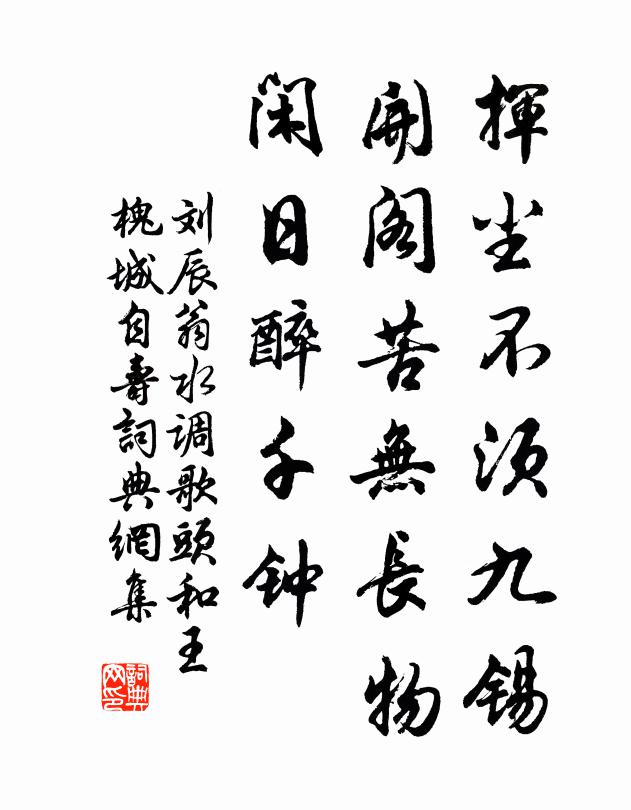 揮尘不須九錫
開閣苦無長物
閑日醉千钟
刘辰翁水调歌頭和王
槐城自壽詞典網集
詞典网印